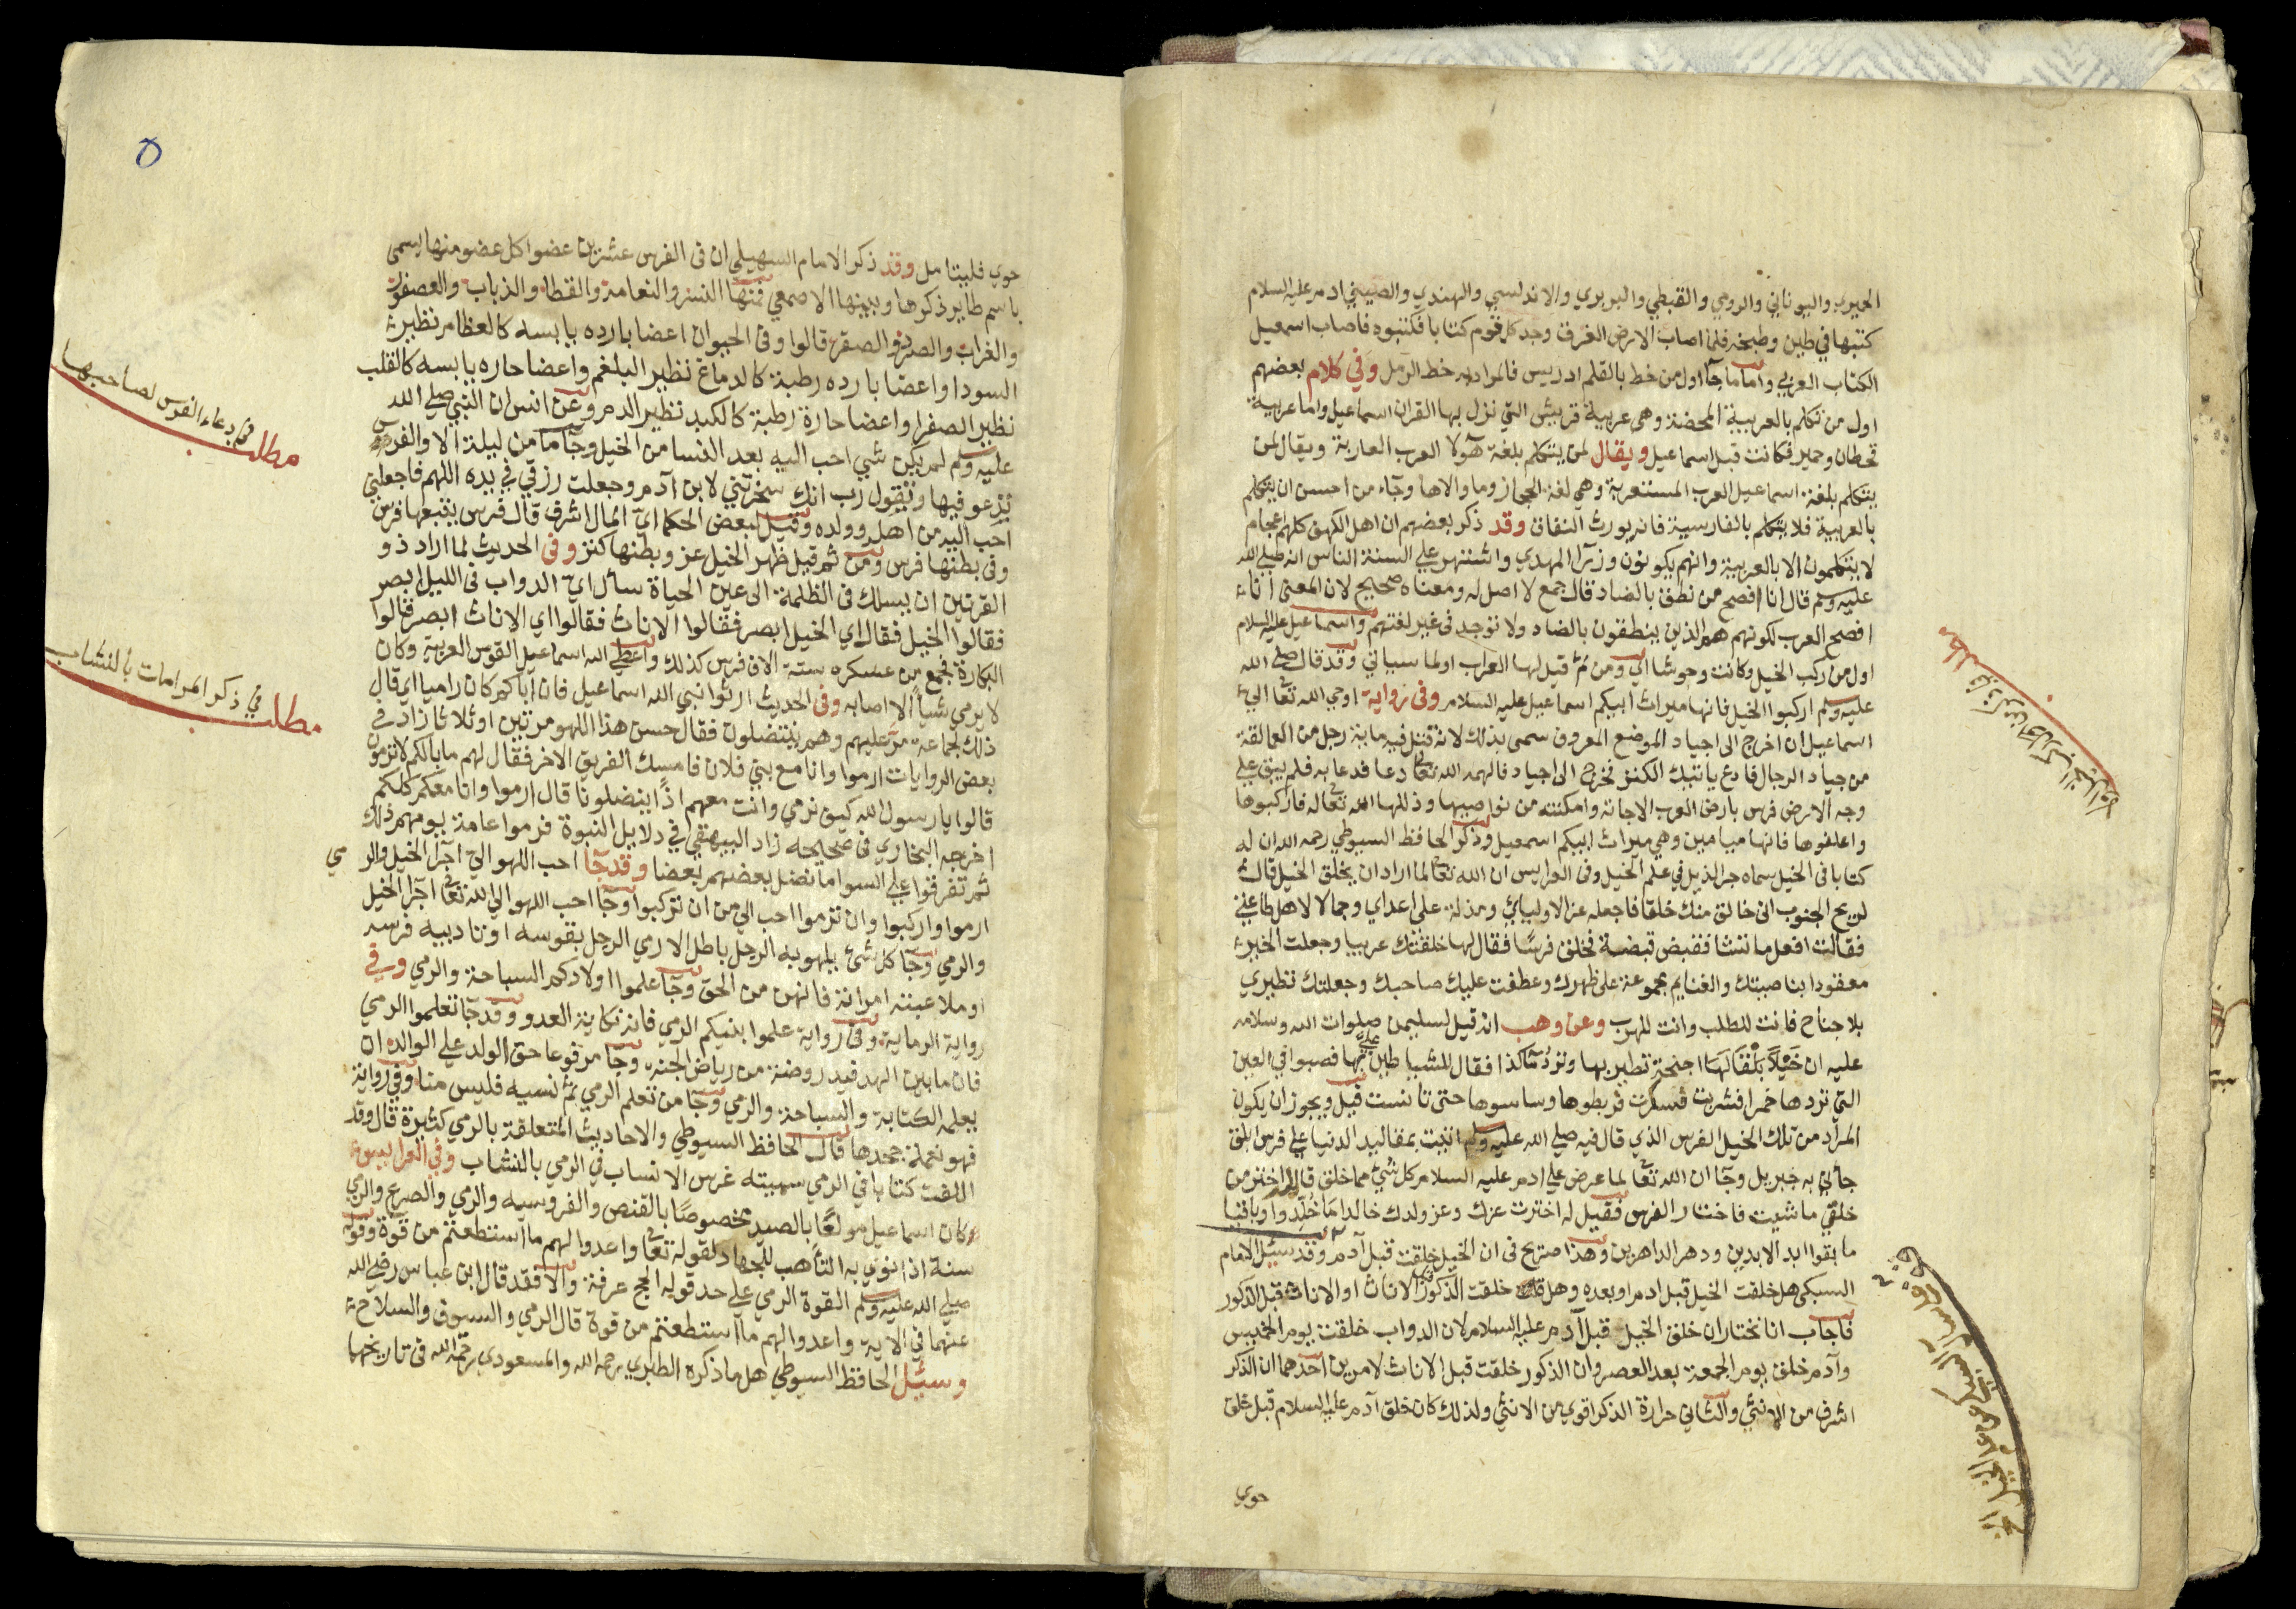 الحميري واليوناني والرومي والقبطي والبربري والاندلسي والهندي والصيني ادم عليه السلام
كتبها في طين وطبخه فلما اصاب الارض الغرق وجد كل قوم كتابا فكتبوه فاصاب اسمعيل
الكتاب العربي واما ما جآ اول من خط بالقلم ادريس فالمراد به خط الرمل وفي كلام بعضهم
اول من تكلم بالعربية المحضة وهي عربية قريش التي نزل بها القران اسماعيل واما عربية
قحطان وحمير فكانت قبل اسماعيل ويقال لمن يتكلم بلغة هؤلا العرب العاربة ويقال لمن
يتكلم بلغة اسماعيل العرب المستعربة وهي لغة الحجاز وما والاها وجآء من احسن ان يتكلم
بالعربية فلا يتكلم بالفارسية فانه يورث النفاق وقد ذكر بعضهم ان اهل الكهف كلهم اعجام
لا يتكلمون الا بالعربية وانهم يكونون وزرآ المهدي واشتهر على السنة الناس انه صلى الله
عليه وسلم قال انا افصح من نطق بالضاد قال جمع لا اصل له ومعناه صحيح لان المعنى انا
افصح العرب لكونهم هم الذين ينطقون بالضاد ولا توجد في غير لغتهم واسماعيل عليه السلام
اول من ركب الخيل وكانت وحوشا اي ومن ثم قيل لها العراب اولما سياتي وقد قال صلى الله
عليه وسلم اركبوا الخيل فانها ميراث ابيكم اسماعيل عليه السلام وفي رواية اوحي الله تعا الي
اسماعيل ان اخرج الى اجياد الموضع المعروف سمى بذلك لانه قتل فيه ماية رجل من العمالقة
من جياد الرجال فادع ياتيك الكنز فخرج الى اجياد فالهمه الله تعا دعا فدعا به فلم يبق على
وجه الارض فرس بارض العرب الا جاته وامكنته من نواصيها وذللها الله تعا له فاركبوها
واعلفوها فانها ميامين وهي ميراث ابيكم اسمعيل وذكر الحافظ السيوطي رحمه الله ان له
كتابا في الخيل سماه جر الذيل في علم الخيل وفى العرايس ان الله تعا لما اراد ان يخلق الخيل قال
لريح الجنوب انى خالق منك خلقا فاجعله عزا لاوليايي ومذلة على اعداي وجمالا لاهل طاعتي
فقالت افعل ما تشا فقبض قبضة فخلق فرسًا فقال لها خلقتك عربيا وجعلت الخير
معقودا بناصيتك والغنايم مجموعة على ظهرك وعطفت عليك صاحبك وجعلتك تطيري
بلا جناح فانت للطلب وانت للهرب وعن وهب انه قيل لسليمن صلوات الله وسلامه
عليه ان خيلاً بلقا لها اجنحة تطير بها وترد ماء كذا فقال للشياطين علي بها فصبوا في العين
التي تردها خمرا فشربت فسكرت فربطوها وساسوها حتى تانست قيل ويجوز ان يكون
المراد من تلك الخيل الفرس الذي قال فيه صلى الله عليه وسلم اتيت بمقاليد الدنيا على فرس ابلق
جآئ به جبريل وجآ ان الله تعا لما عرض على ادم عليه السلام كل شئ مما خلق قال له اختر من
خلقي ما شيت فاختار الفرس فقيل له اخترت عزك وعز ولدك خالدا ما خلدوا وباقيا
ما بقوا ابد الابدين ودهر الداهرين وهذا صريح فى ان الخيل خلقت قبل آدم وقد سئل الامام
السبكى هل خلقت الخيل قبل ادم او بعده وهل خلقت الذكور قبل الاناث او الاناث قبل الذكور
فاجاب انا نختار ان خلق الخيل قبل آدم عليه السلام لان الدواب خلقت يوم الخميس
وآدم خلق يوم الجمعة بعد العصر وان الذكور خلقت قبل الاناث لامرين احدهما ان الذكر
اشرف من الانثي والثاني حرارة الذكر اقوي من الانثي ولذلك كان خلق آدم عليه السلام قبل خلق
حوي
٥
حوي فليتامل وقد ذكر الامام السهيلي ان فى الفرس عشرين عضوا كل عضو منها يسمى
باسم طاير ذكرها وبينها الاصمعي فمنها النسر والنعامة والقطاه والذباب والعصفور
والغراب والصرد والصقر قالوا وفى الحيوان اعضا بارده يابسه كالعظام نظير
السودا واعضا بارده رطبة كالدماغ نظير البلغم واعضا حاره يابسه كالقلب
نظير الصفرا واعضا حارة رطبة كالكبد نظير الدم وعن انس ان النبي صلى الله
عليه وسلم لم يكن شي احب اليه بعد النسا من الخيل وجآ ما من ليلة الا والفرس
يدعو فيها ويقول رب انك سخرتني لابن آدم وجعلت رزقي في يده اللهم فاجعلني
احب اليه من اهله وولده وقيل لبعض الحكما اي المال اشرف قال فرس يتبعها فرس
وفى بطنها فرس ومن ثم قيل ظهر الخيل عز وبطنها كنز وفى الحديث لما اراد ذو
القرنين ان يسلك فى الظلمة الى عين الحياة سأل اي الدواب فى الليل ابصر
فقالوا الخيل فقال اي الخيل ابصر فقالوا الاناث فقالوا اي الاناث ابصر قالوا
البكارة فجمع من عسكره ستة الاف فرس كذلك واعطي الله اسماعيل القوس العربية وكان
لا يرمي شيأ الا اصابه وفى الحديث ارموا نبي الله اسماعيل فان اباكم كان راميا اي قال
ذلك لجماعة مر عليهم وهم ينتضلون فقال حسن هذا اللهو مرتين او ثلاثا زاد في
بعض الروايات ارموا وانا مع بني فلان فامسك الفريق الاخر فقال لهم ما بالكم لا ترمون
قالوا يا رسول الله كيف نرمي وانت معهم اذًا ينضلونا قال ارموا وانا معكم كلكم
اخرجه البخاري فى صحيحه زاد البيهقي في دلايل النبوة فرموا عامة يومهم ذلك
ثم تفرقوا على السوا ما نضل بعضهم بعضا وقد جآ احب اللهو الي اجرآ الخيل والرمي
ارموا واركبوا وان ترموا احب الي من ان تركبوا وجآ احب اللهو الي الله تعا اجرآ الخيل
والرمي وجآ كل شئ يلهو به الرجل باطل الا رمي الرجل بقوسه او تاديبه فرسه
او ملاعبته امراته فانهن من الحق وجآ علموا اولادكم السباحة والرمي وفي
رواية الرماية وفى رواية علموا بنيكم الرمي فانه نكاية العدو وقد جآ تعلموا الرمي
فان ما بين الهدفين روضة من رياض الجنة وجآ مرفوعا حق الولد على الوالد ان
يعلمه الكتابة والسباحة والرمي وجآ من تعلم الرمي ثم نسيه فليس منا وفي رواية
فهو نعمة جحدها قال الحافظ السيوطي والاحاديث المتعلقة بالرمي كثيرة قال وقد
الفت كتابا في الرمي سميته غرس الانساب في الرمي بالنشاب وفي العرايس
كان اسماعيل مولعًا بالصيد مخصوصًا بالقنص والفروسيه والرمي والصرع والرمي
سنة اذا نوي به التاهب للجهاد لقوله تعا واعدوا لهم ما استطعتم من قوة وقوله
صلى الله عليه وسلم القوة الرمي على حد قوله الحج عرفة والا فقد قال ابن عباس رضي الله
عنهما في الاية واعدوا لهم ما استطعتم من قوة قال الرمي والسيوف والسلاح
وسئل الحافظ السيوطي هل ما ذكره الطبري رحمه الله والمسعودي رحمه الله فى تاريخهما
مطلب في دعاء الفرس لصاحبها
مطلب في ذكر المرامات بالنشاب